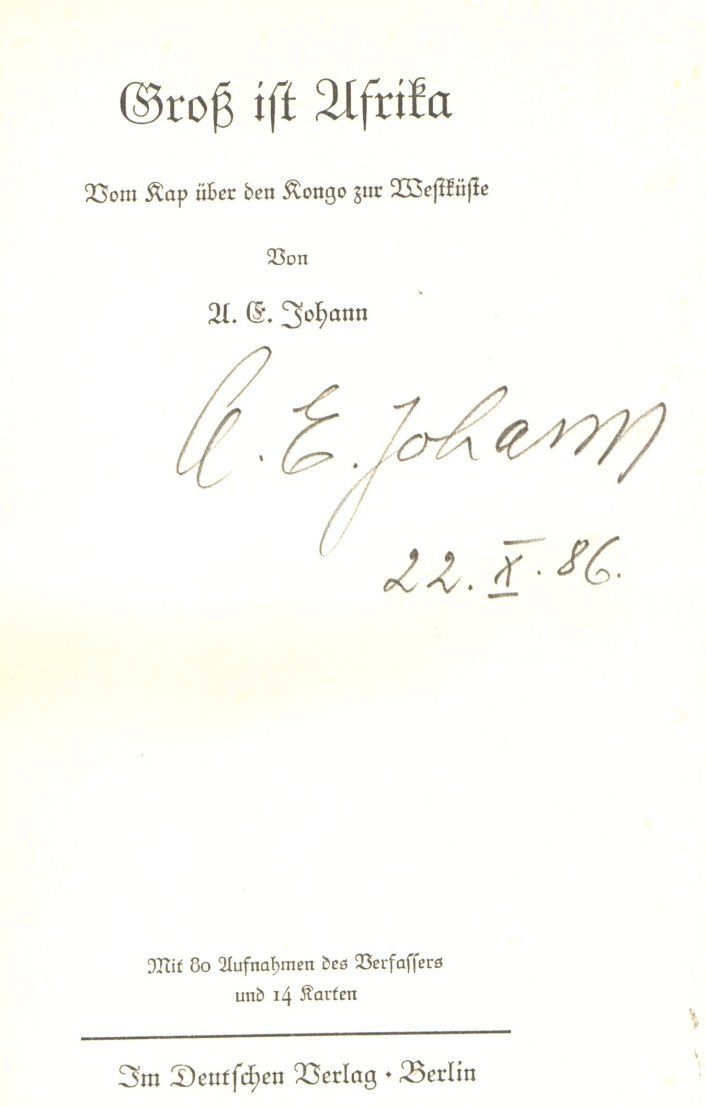 Groß ist Afrika
Vom Kap über den Kongo zur Westküste
Von
A. E. Johann
A. E. Johann
22. X. 86.
Mit 80 Aufnahmen des Verfassers
und 14 Karten
Im Deutschen Verlag • Berlin